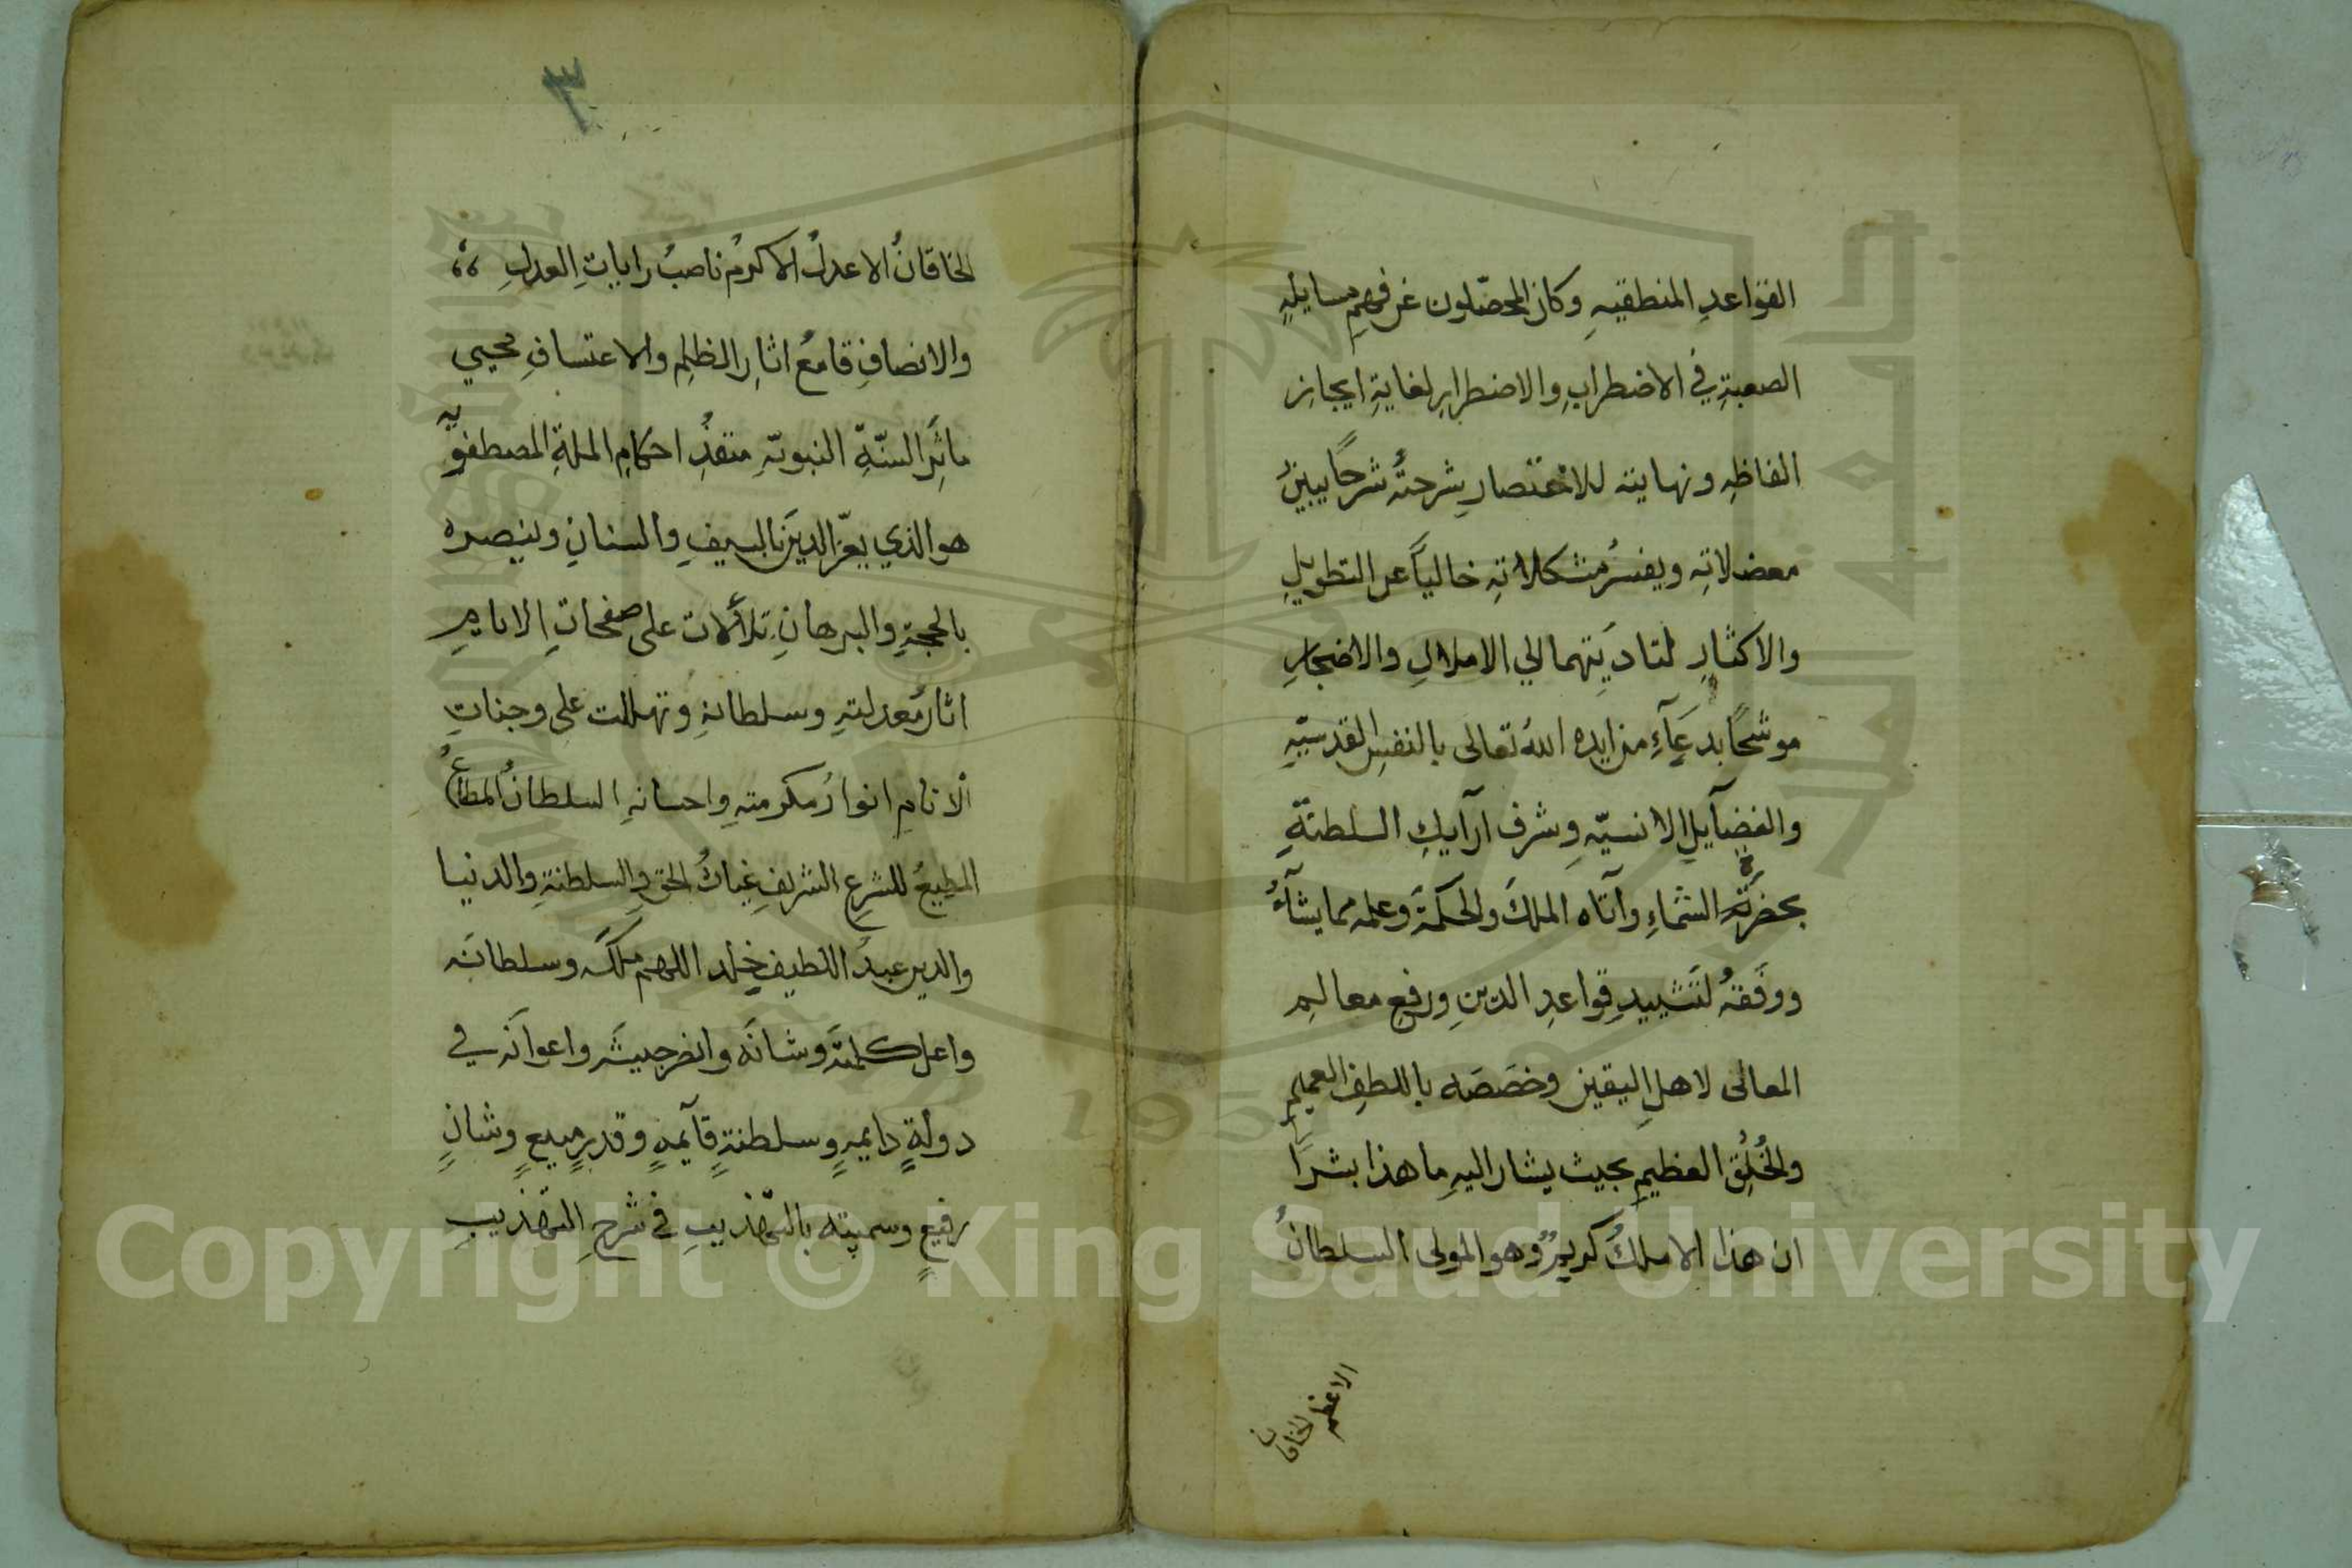 القواعدِ المنطقيهِ وكان المحصّلون عن فهمِ مسايلهِ
الصعبةِ في الاضطرابِ والاضطرارِ لغايةِ ايجازِ
الفاظهِ ونهايته للاختصارِ شرحتُه شرحًا يبينُ
معضلاتهِ ويفسرُ مشكلاتهِ خالياً عن التطويلِ
والاكثارِ لتاديَتِهما الي الاملالِ والاضجارِ
موشحًا بدعآءِ من ايده اللهُ تعالى بالنفسِ القدسيّهِ
والفضآيلِ الانسيّهِ وشرف ارآيكِ السلطنةِ
بحضرتِه الشمآءِ وآتاه الملكَ والحكمةَ وعلمه مما يشآءُ
ووفقهُ لتشييدِ قواعدِ الدينِ ورفعِ معالمِ
المعالى لاهلِ اليقينِ وخصَصَه باللطفِ العميمِ
والخُلُقِ العظيمِ بحيث يشار اليهِ ما هذا بشرًا
ان هذا الا ملكٌ كريمٌ وهو المولى السلطانُ
الاعظم الخاقان
٣
الخاقانُ الاعدلُ الاكرمُ ناصبُ راياتِ العدلِ
والانصافِ قامعُ اثارِ الظلمِ والاعتسافِ محيي
ماثرَ السنّةِ النبويّهِ منقذُ احكامِ الملةِ المصطفويّه
هو الذي يعزّ الدينَ بالسيفِ والسنانِ وينصره
بالحجةِ والبرهانِ تلألأت على صفحاتِ الايامِ
اثارُ معدلتهِ وسلطانهِ وتهللت على وجناتِ
الانامِ انوارُ مكرمتهِ واحسانهِ السلطانُ المطاعُ
المطيعُ للشرعِ الشريفِ غياثُ الحقِ والسلطنةِ والدنيا
والدين عبدُ اللطيف خلد اللهم ملكَه وسلطانَه
واعل كلمتَه وشانَه وانصر جيشَه واعوانَه في
دولةٍ دايمهٍ وسلطنةٍ قآيمهٍ وقدرٍ منيعٍ وشانٍ
رفيعٍ وسميته بالتهذيبِ في شرحِ التهذيبِ
Copyright © King Saud University
1957